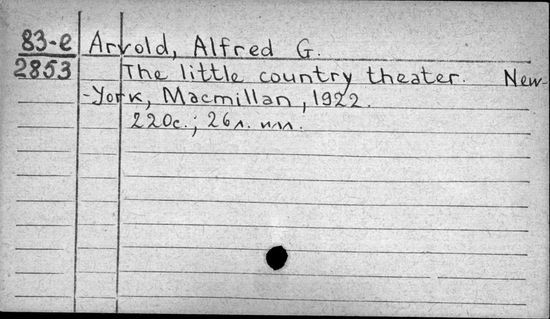 83-е Arvold, Alfred G.
2853 The little country theater. New-
-York, Macmillan, 1922.
220с.; 26л. илл.